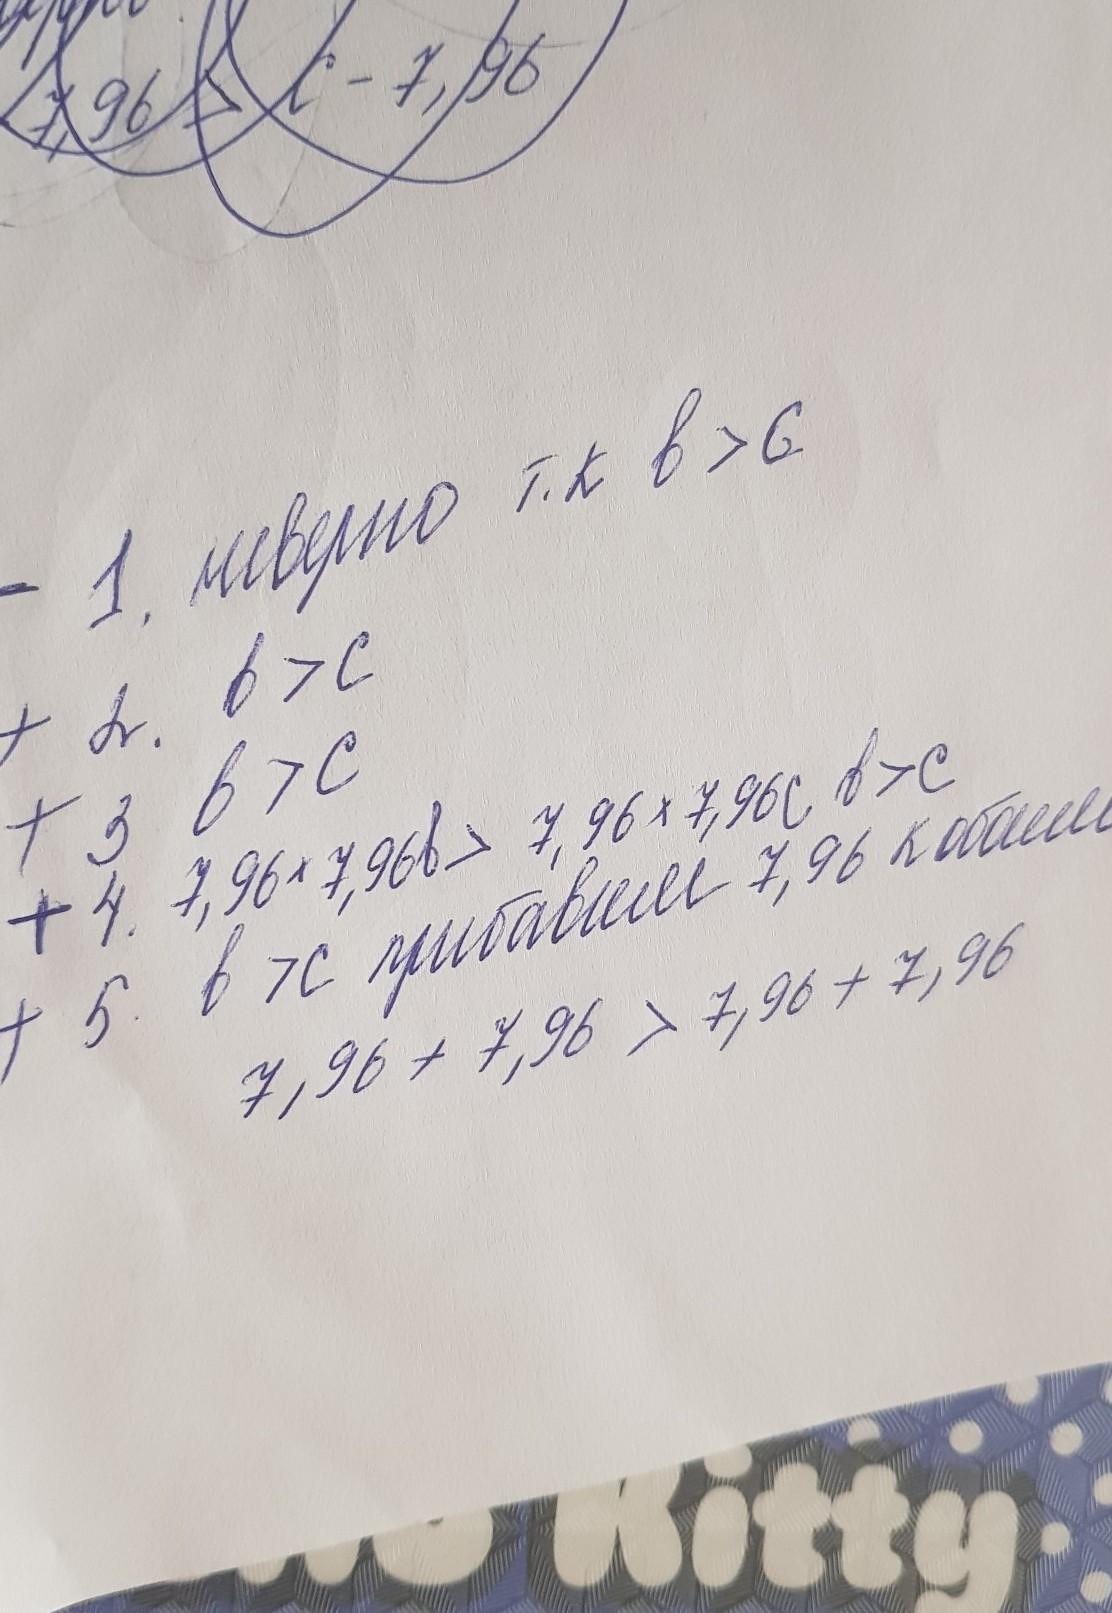 7,96 > c - 7,96
- 1. неверно т.к b > c
+ 2. b > c
+ 3 b > c
+ 4. 7,96 × 7,96b > 7,96 × 7,96c b > c
+ 5. b > c прибавим 7,96 к обоим
7,96 + 7,96 > 7,96 + 7,96
Kitty